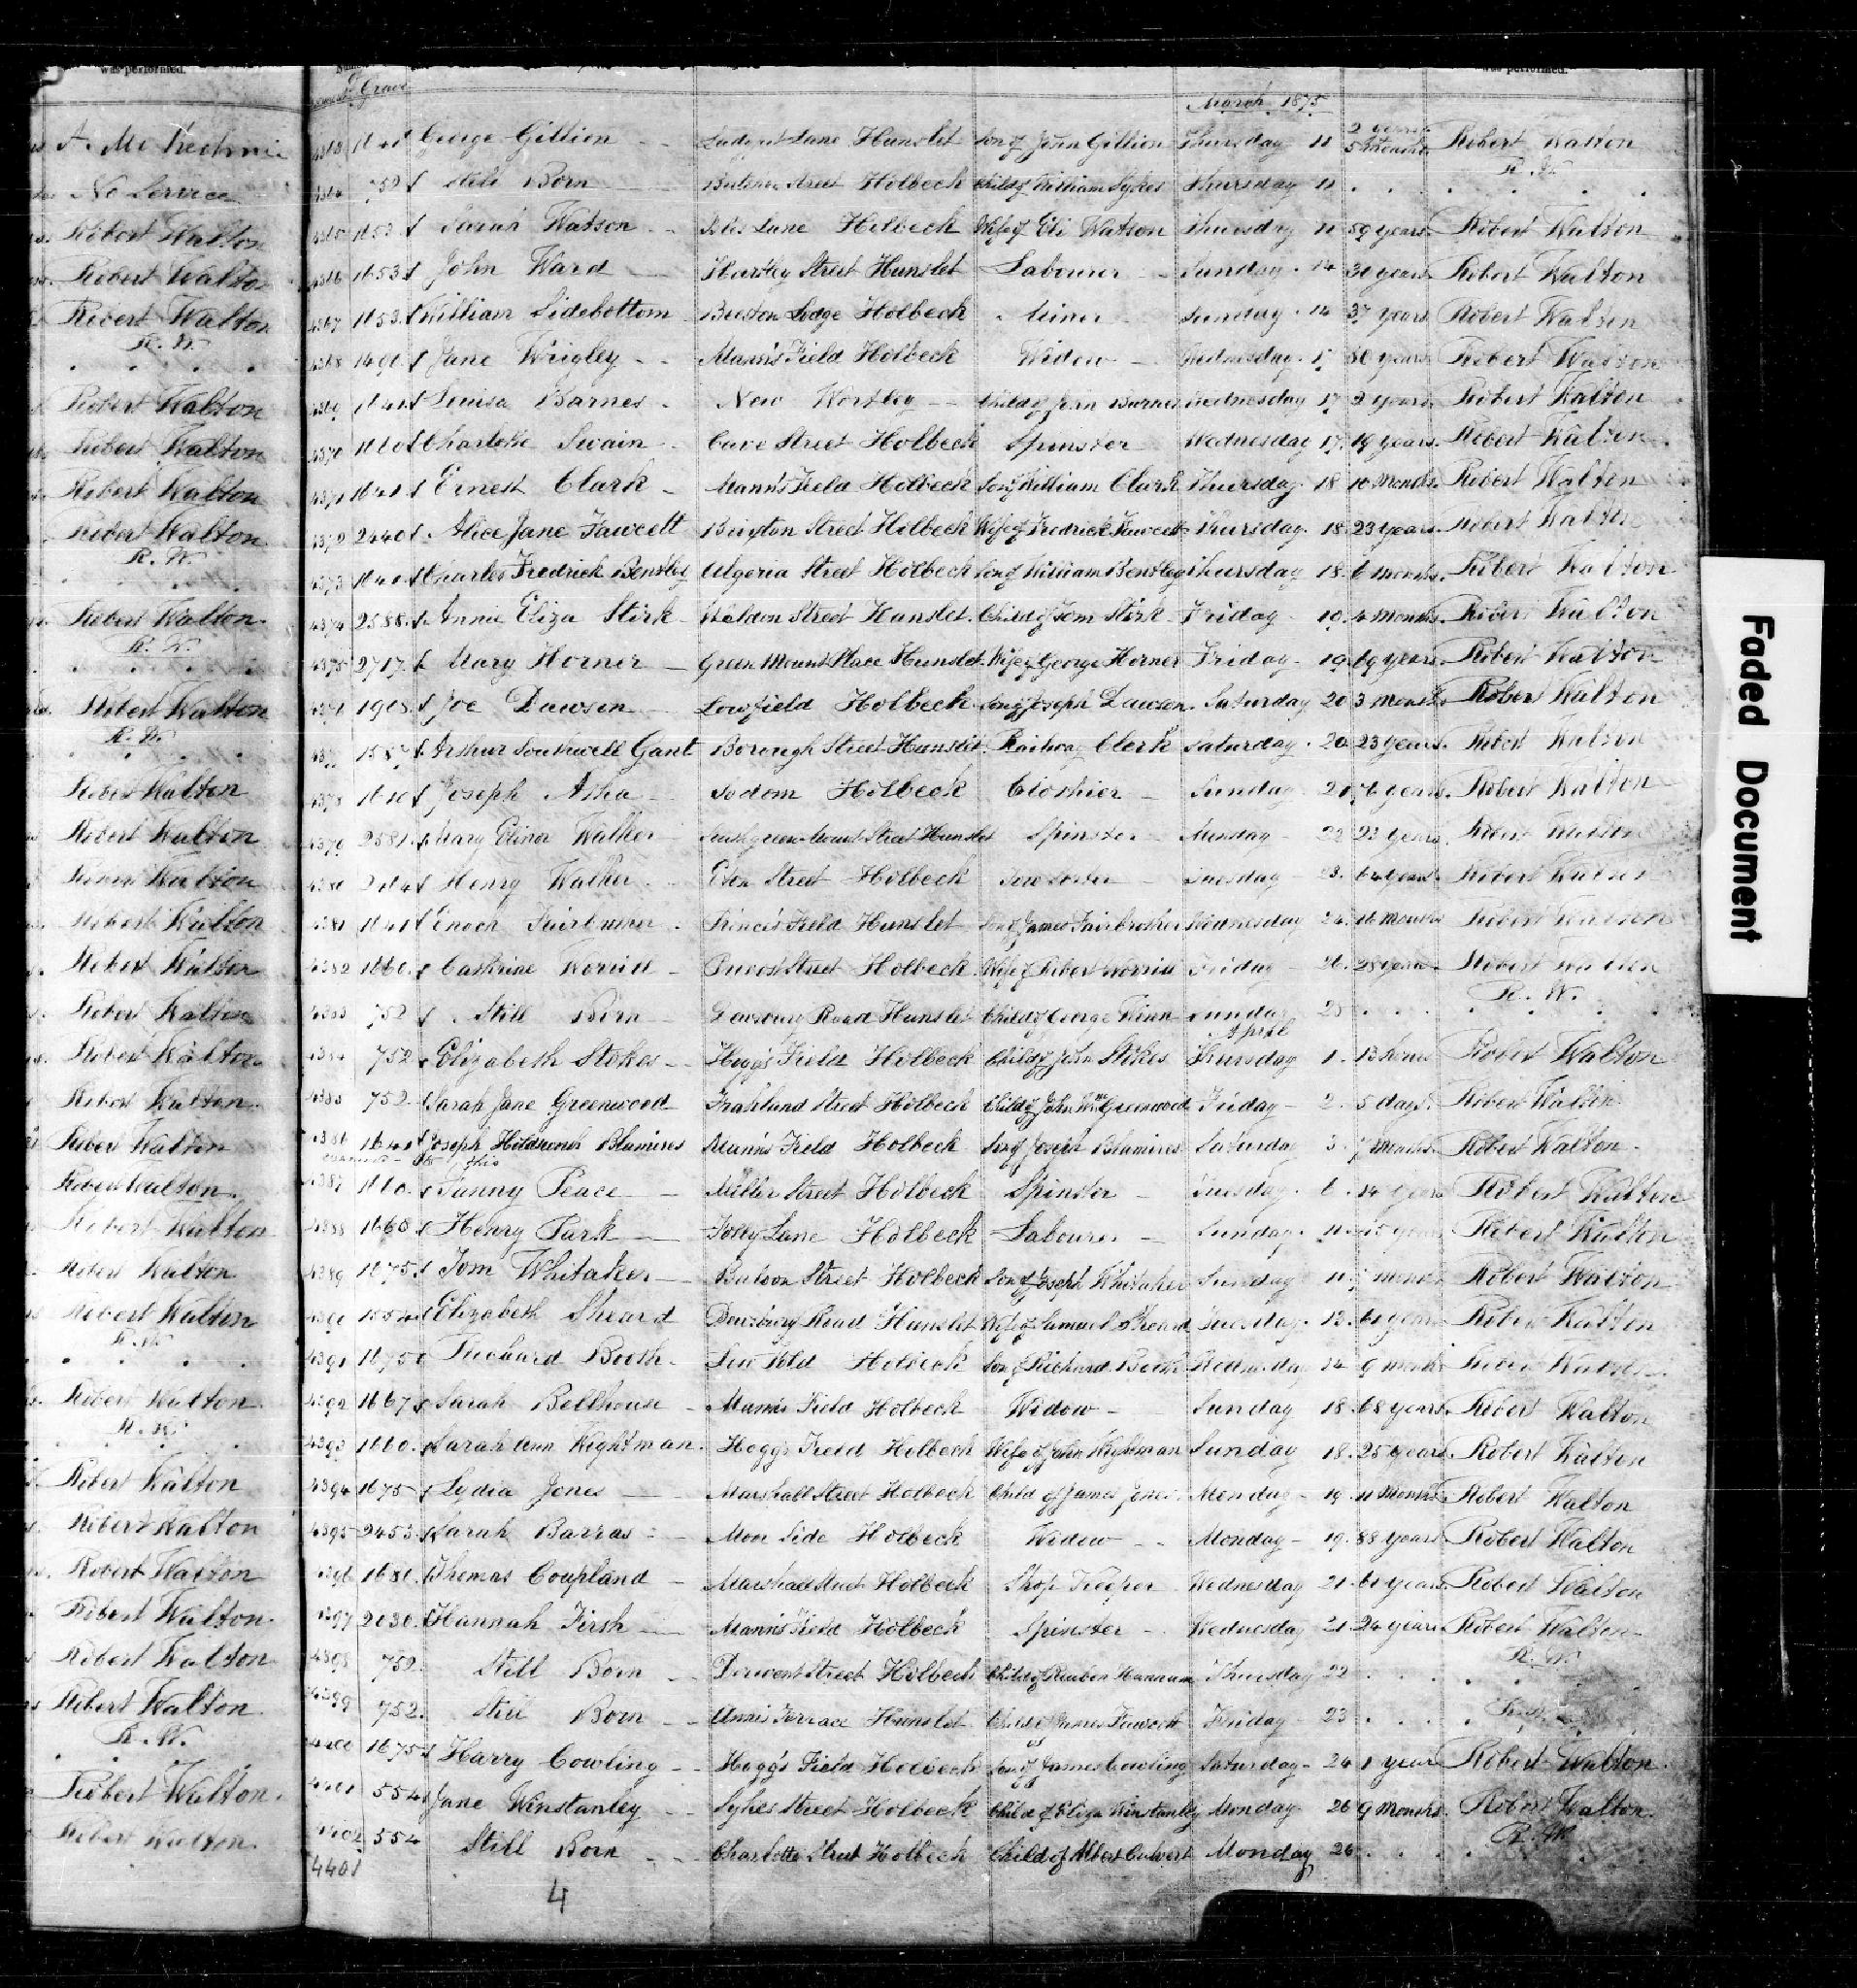 was performed.
No Service
Robert Walton
Robert Walton
Robert Walton
R. W.
Robert Walton
Robert Walton
Robert Walton
Robert Walton
R. W.
Robert Walton
R. W.
Robert Walton
R. W.
Robert Walton
Robert Walton
Robert Walton
Robert Walton
Robert Walton
Robert Walton
Robert Walton
Robert Walton
Robert Walton
Robert Walton
Robert Walton
Robert Walton
Robert Walton
R. W.
Robert Walton
R. W.
Robert Walton
Robert Walton
Robert Walton
Robert Walton
Robert Walton
Robert Walton
R. W.
Robert Walton
Robert Walton
Grave
was performed.
March 1875
George Gillion Lane Hunslet Son of John Gillion Thursday 11 2 years 5 months Robert Walton
R. W.
752 Still Born Street Holbeck Child of William Sykes Thursday 11
4365 Sarah Watson Lane Holbeck Wife of Eli Watson Thursday 11 59 years Robert Walton
4366 1653 John Ward Hartley Street Hunslet Labourer Sunday 14 Robert Walton
4367 1653 William Sidebottom Beeston Lodge Holbeck Miner Sunday 14 37 years Robert Walton
4368 Jane Wrigley Mann's Field Holbeck Widow Wednesday 17 Robert Walton
4369 1641 Louisa Barnes New Wortley Child of John Barnes Wednesday 17 2 years Robert Walton
4370 1660 Charlotte Swain Cave Street Holbeck Spinster Wednesday 17 19 years Robert Walton
4371 1641 Ernest Clark Mann's Field Holbeck Son of William Clark Thursday 18 10 Months Robert Walton
4372 2440 Alice Jane Fawcett Street Holbeck Wife of Fredrick Fawcett Thursday 18 23 years Robert Walton
4373 1641 Charles Fredrick Bensley Algeria Street Holbeck Son of William Bensley Thursday 18 6 months Robert Walton
4374 2588 Annie Eliza Stirk Waldon Street Hunslet Child of Tom Stirk Friday 19 4 Months Robert Walton
4375 2717 Mary Horner Green Mount Place Hunslet Wife of George Horner Friday 19 69 years Robert Walton
4376 1908 Joe Dawson Lowfield Holbeck Son of Joseph Dawson Saturday 20 3 Months Robert Walton
4377 1587 Arthur Southwell Gant Borough Street Hunslet Railway Clerk Saturday 20 23 years Robert Walton
4378 Joseph Sodom Holbeck Clothier Sunday 21 76 years Robert Walton
4379 2581 Mary Elinor Walker Street Hunslet Spinster Monday 22 23 years Robert Walton
4380 Henry Walker Street Holbeck Tuesday 23 64 years Robert Walton
4381 1641 Enoch Field Hunslet Son of James Fairbrother Wednesday 24 Months Robert Walton
4382 1660 Cathrine Worrill Street Holbeck Wife of Robert Worrill Friday 26 28 years Robert Walton
R. W.
4383 752 Still Born Road Hunslet Child of George Sunday 28
April
4384 752 Elizabeth Stokes Hogg's Field Holbeck Child of John Stokes Thursday 1 13 hours Robert Walton
4385 752 Sarah Jane Greenwood Street Holbeck Child of John Wm Greenwood Friday 2 5 days Robert Walton
4386 1641 Joseph Blamires Mann's Field Holbeck Son of Joseph Blamires Saturday 3 7 Months Robert Walton
4387 1660 Fanny Peace Miller Street Holbeck Spinster Tuesday 6 14 years Robert Walton
4388 1668 Henry Park Folly Lane Holbeck Labourer Sunday 11 Robert Walton
4389 1675 Tom Whitaker Street Holbeck Son of Joseph Whitaker Sunday 11 Robert Walton
4390 Elizabeth Sheard Dewsbury Road Hunslet Wife of Samuel Sheard Tuesday 13 61 years Robert Walton
4391 1675 Richard Booth Low Fold Holbeck Son of Richard Booth Wednesday 14 9 months Robert Walton
4392 1667 Sarah Bellhouse Mann's Field Holbeck Widow Sunday 18 68 years Robert Walton
4393 1660 Sarah Ann Wightman Hogg's Field Holbeck Wife of John Wightman Sunday 18 25 years Robert Walton
4394 1675 Lydia Jones Marshall Street Holbeck Child of James Jones Monday 19 11 Months Robert Walton
4395 2453 Sarah Barras Moor Side Holbeck Widow Monday 19 88 years Robert Walton
4396 1681 Thomas Coupland Marshall Street Holbeck Shop Keeper Wednesday 21 61 years Robert Walton
4397 2030 Hannah Firth Mann's Field Holbeck Spinster Wednesday 21 24 years Robert Walton
R. W.
4398 752 Still Born Derwent Street Holbeck Child of Reuben Hannam Thursday 22
4399 752 Still Born Ann's Terrace Hunslet Child of James Friday 23
4400 1675 Harry Cowling Hogg's Field Holbeck Son of James Cowling Saturday 24 1 year Robert Walton
4401 554 Jane Winstanley Sykes Street Holbeck Child of Eliza Winstanley Monday 26 9 Months Robert Walton
R. W.
4402 554 Still Born Charlotte Street Holbeck Child of Albert Calvert Monday 26
4401
4
Faded Document